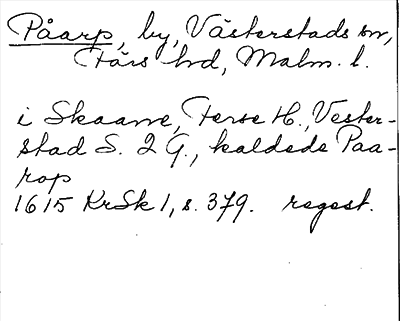 Påarp, by, Västerstads sn,
Färs hd, Malm. l.
i Skaane, Ferse H., Vester-
stad S. 2 G., kaldede Paa-
rop
1615 KrSk 1, s. 379. regest.